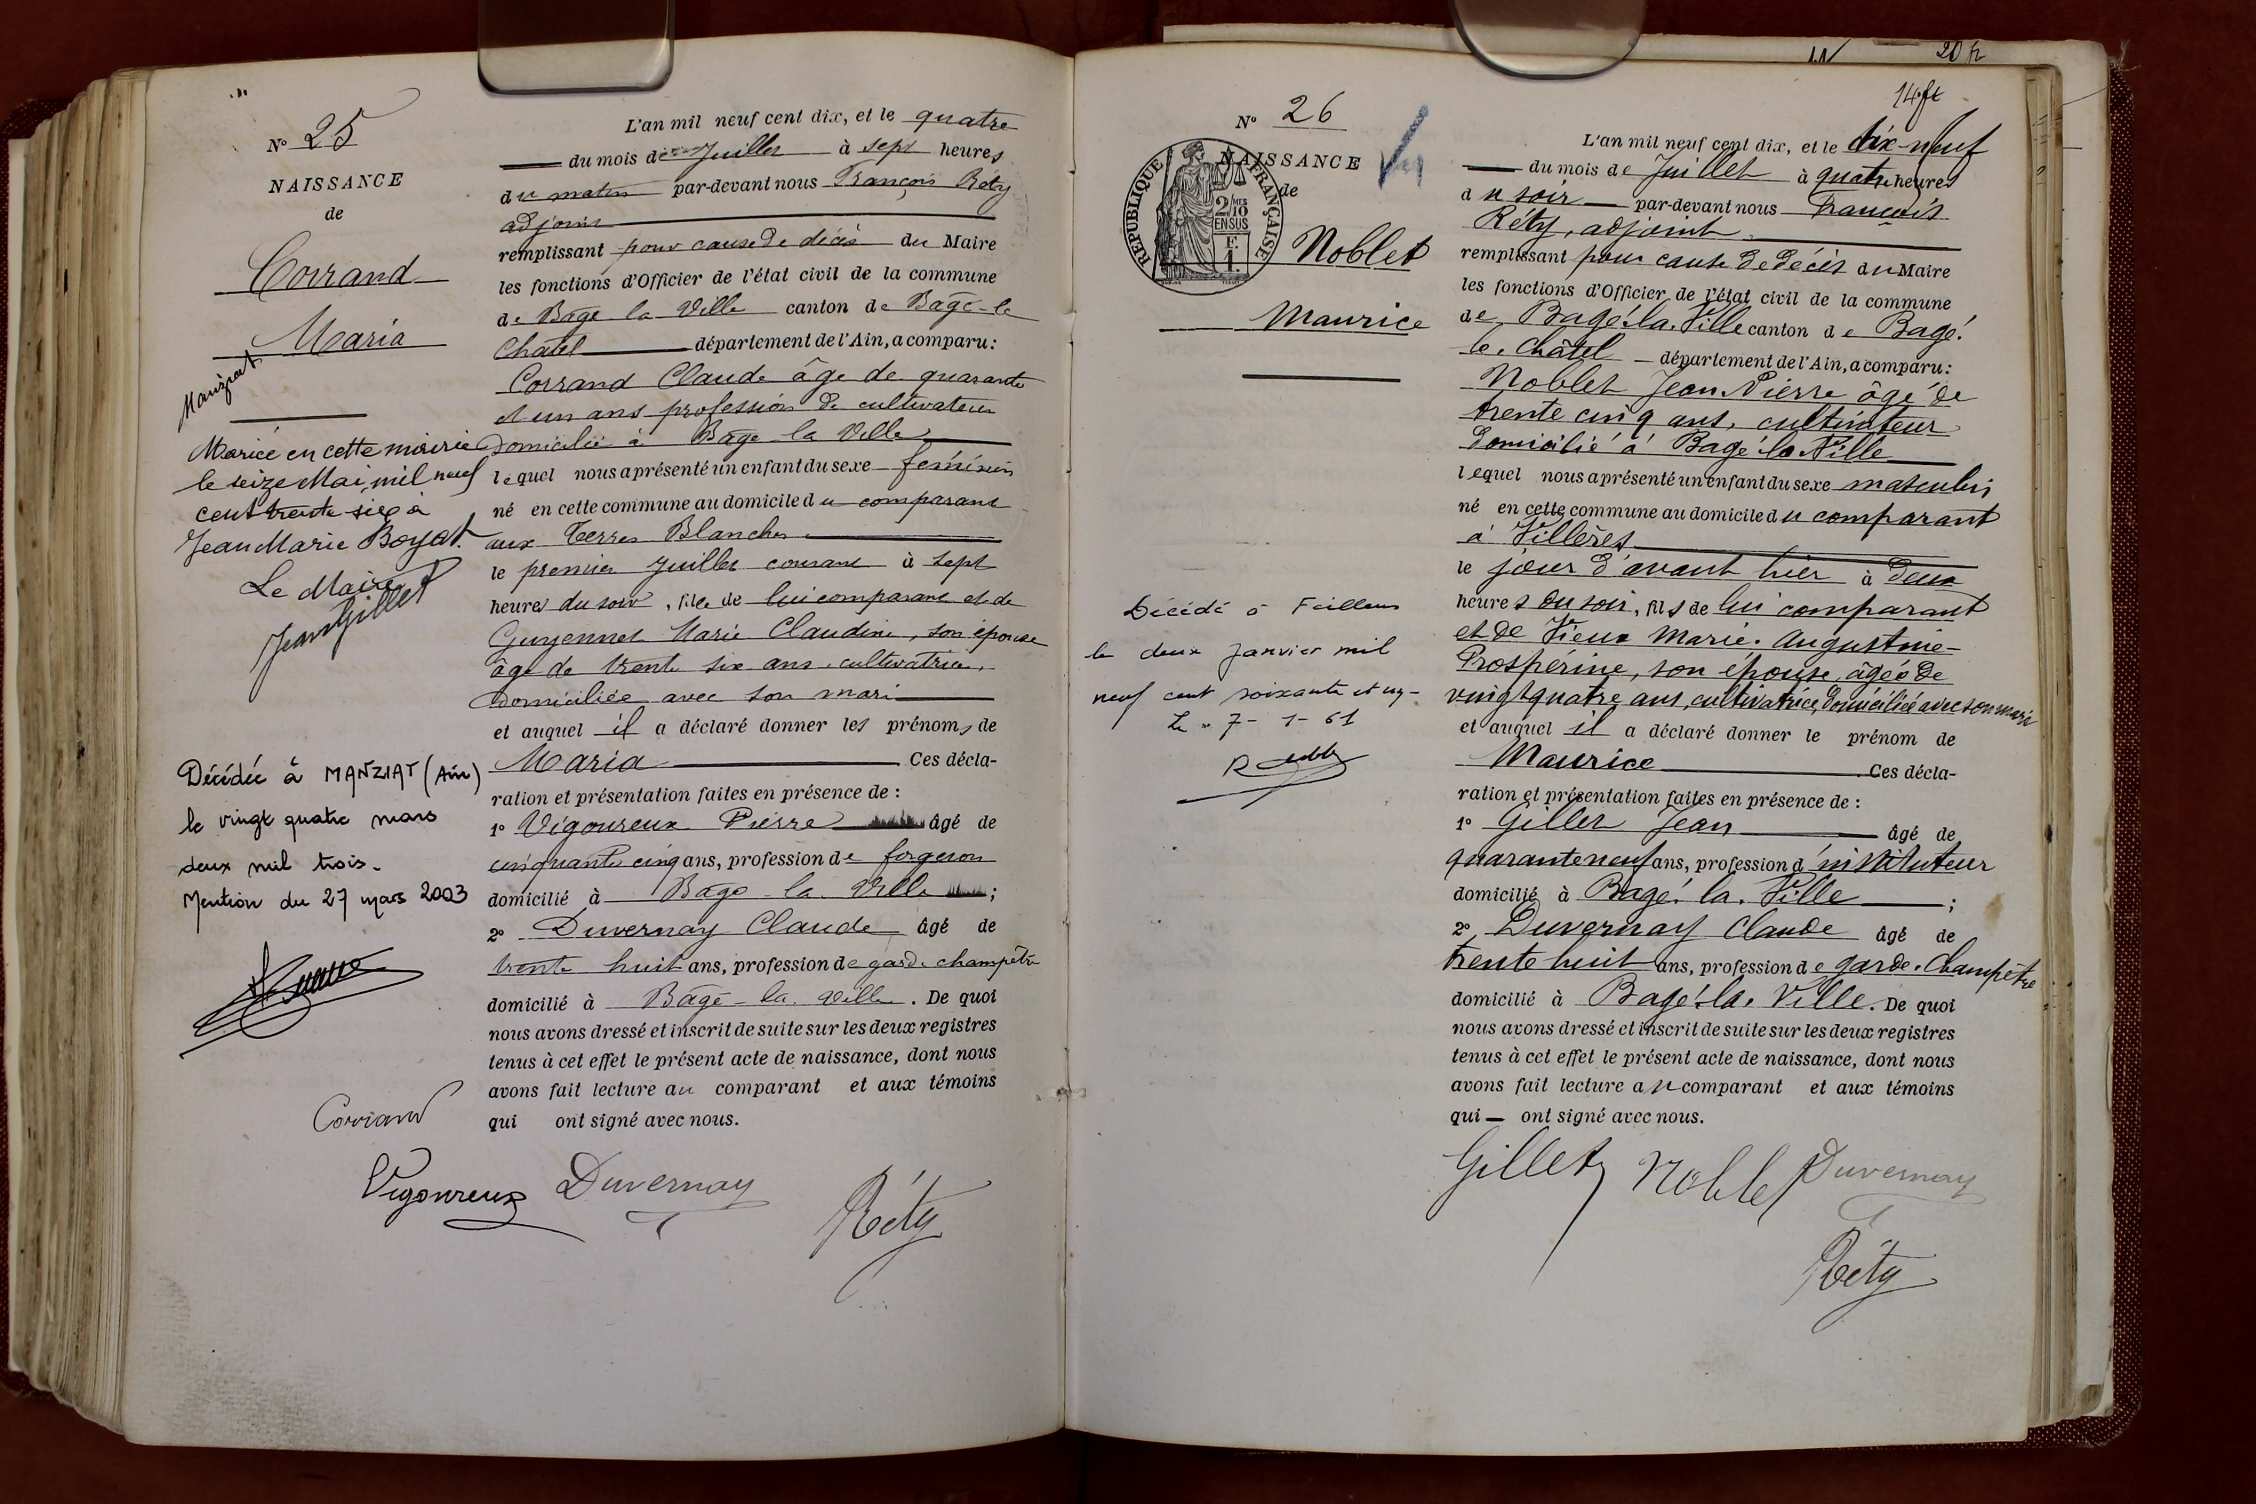 N° 25
NAISSANCE
de
Corrand
Maria
Manziat
Mariée en cette mairie
le seize Mai mil neuf
cent trente six à
Jean Marie Boyat.
Le Maire
Jean Gillet
Décédée à MANZIAT (Ain)
le vingt quatre mars
deux mil trois.
Mention du 27 mars 2003
L'an mil neuf cent dix, et le quatre
du mois de Juillet à sept heures
du matin par-devant nous François Réty
adjoint
remplissant pour cause de décès du Maire
les fonctions d'Officier de l'état civil de la commune
de Bâgé la Ville canton de Bâgé-le
Chatel département de l'Ain, a comparu:
Corrand Claude âgé de quarante
et un ans profession de cultivateur
domicilié à Bâgé la Ville
lequel nous a présenté un enfant du sexe féminin
né en cette commune au domicile du comparant
aux Terres Blanches
le premier Juillet courant à sept
heures du soir, fille de lui comparant et de
Guyennet Marie Claudine, son épouse
âgé de trente six ans cultivatrice,
domiciliée avec son mari
et auquel il a déclaré donner les prénoms de
Maria Ces décla-
ration et présentation faites en présence de :
1° Vigoureux Pierre âgé de
cinquante cinq ans, profession de forgeron
domicilié à Bâgé la Ville ;
2° Duvernay Claude âgé de
trente huit ans, profession de garde champêtre
domicilié à Bâgé-la Ville. De quoi
nous avons dressé et inscrit de suite sur les deux registres
tenus à cet effet le présent acte de naissance, dont nous
avons fait lecture au comparant et aux témoins
qui ont signé avec nous.
Corrand
Vigoureux Duvernay
Réty
20 fr
14 ft
N° 26
NAISSANCE
de
REPUBLIQUE FRANÇAISE
2/10 MES
EN SUS
F.
1.
Noblet
Maurice
Décédé à Feillens
le deux janvier mil
neuf cent soixante et un-
Le 7-1-61
L'an mil neuf cent dix, et le dix-neuf
du mois de Juillet à quatre heures
du soir par-devant nous François
Réty, adjoint
remplissant pour cause de décès du Maire
les fonctions d'Officier de l'état civil de la commune
de Bagé-la-Ville canton de Bagé-
le-Châtel département de l'Ain, a comparu:
Noblet Jean-Pierre âgé de
trente cinq ans, cultivateur
domicilié à Bagé-la-Ville
lequel nous a présenté un enfant du sexe masculin
né en cette commune au domicile du comparant
à Villères
le jour d'avant hier à deux
heures du soir, fils de lui comparant
et de Vieux Marie-Augustine-
Prospérine, son épouse, âgée de
vingt quatre ans, cultivatrice, domiciliée avec son mari
et auquel il a déclaré donner le prénom de
Maurice Ces décla-
ration et présentation faites en présence de :
1° Gillet Jean âgé de
quarante neuf ans, profession d'instituteur
domicilié à Bagé-la-Ville ;
2° Duvernay Claude âgé de
trente huit ans, profession de garde-Champêtre
domicilié à Bagé-la-Ville. De quoi
nous avons dressé et inscrit de suite sur les deux registres
tenus à cet effet le présent acte de naissance, dont nous
avons fait lecture au comparant et aux témoins
qui ont signé avec nous.
Gillet Noblet Duvernay
Réty